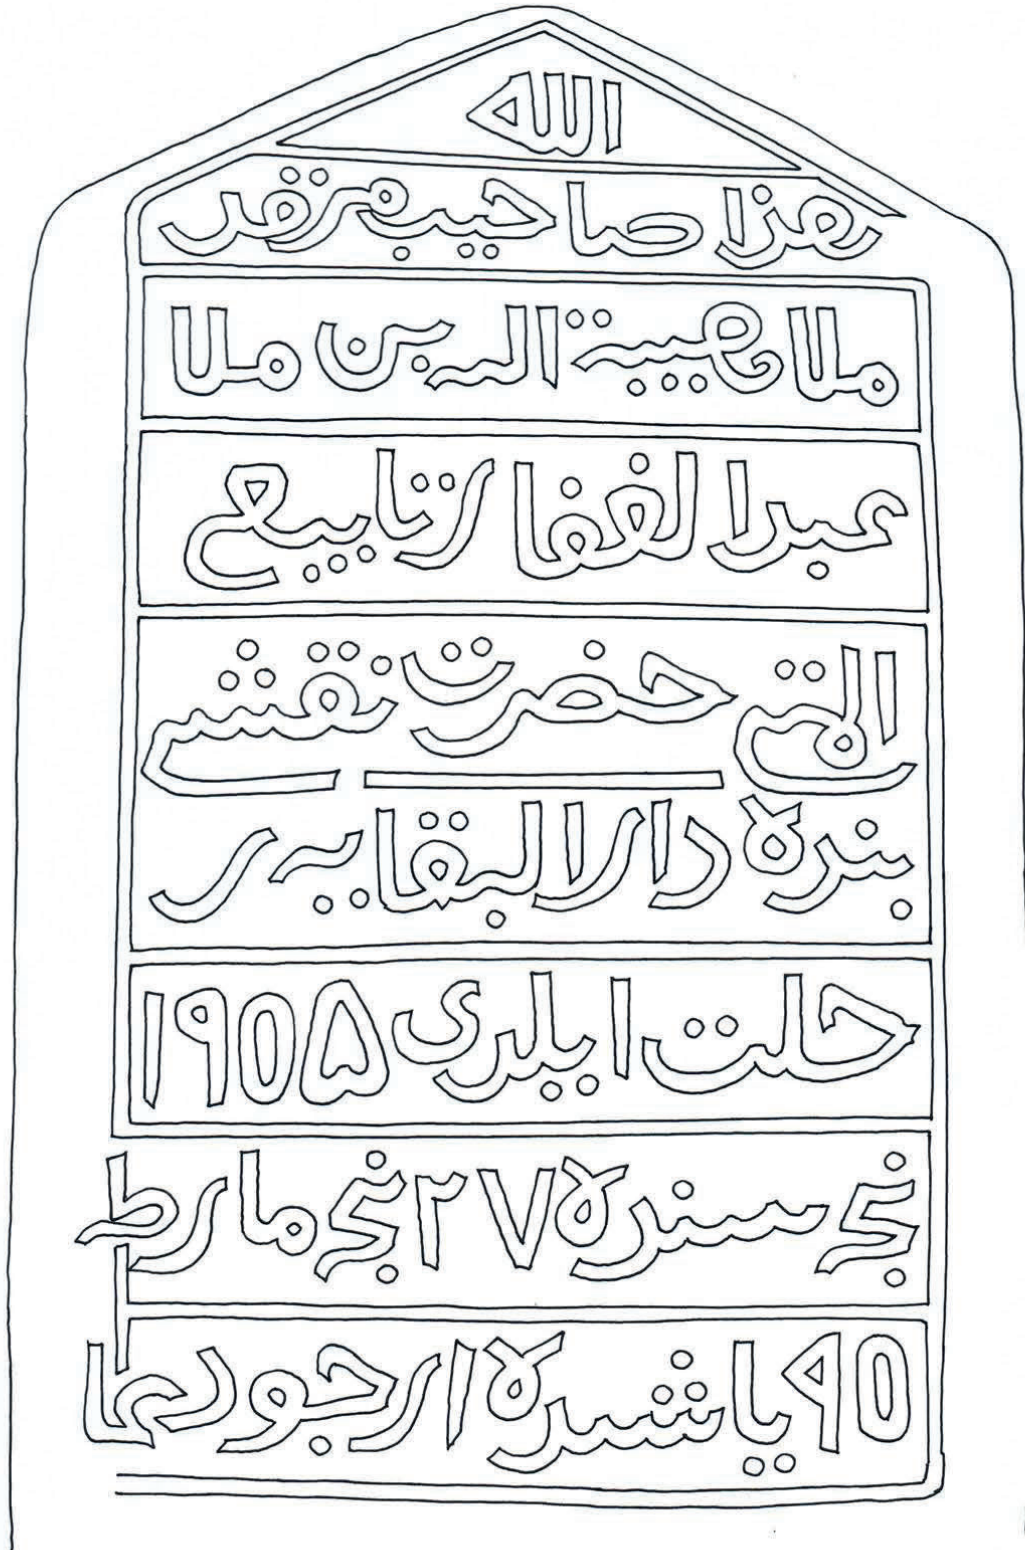 الله
هزا صاحيب مرقد
ملا هيبة الدين ملا
عبد الغفار تابيع
التى حضرت نقشى
بنده دار البقايه ر
حلت ايلدى ۱۹۰۵
نجى سنده ۲۷ نجى مارط
٩٥ ياشده ارجو دعا